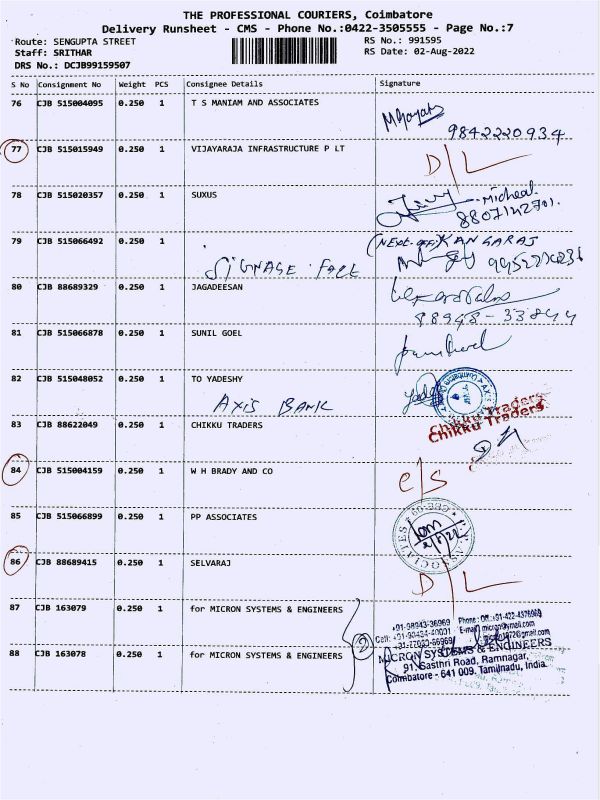 THE PROFESSIONAL COURIERS, Coimbatore
Delivery Runsheet - CMS - Phone No.:0422-3505555 - Page No.:7
Route: SENGUPTA STREET RS No.: 991595
Staff: SRITHAR RS Date: 02-Aug-2022
DRS No.: DCJB99159507
S No Consignment No Weight PCS Consignee Details Signature
76 CJB 515004095 0.250 1 T S MANIAM AND ASSOCIATES
9842220934
77 CJB 515015949 0.250 1 VIJAYARAJA INFRASTRUCTURE P LT D/L
78 CJB 515020357 0.250 1 SUXUS Micheal
8807142701
79 CJB 515066492 0.250 1 KANGARAJ
SIGNAGE
80 CJB 88689329 0.250 1 JAGADEESAN
88948-33844
81 CJB 515066878 0.250 1 SUNIL GOEL
82 CJB 515048052 0.250 1 TO YADESHY
AXIS BANK
Chikku Traders
Chikku Traders
83 CJB 88622049 0.250 1 CHIKKU TRADERS
84 CJB 515004159 0.250 1 W H BRADY AND CO
85 CJB 515066899 0.250 1 PP ASSOCIATES
86 CJB 88689415 0.250 1 SELVARAJ D/L
87 CJB 163079 0.250 1 for MICRON SYSTEMS & ENGINEERS
2
88 CJB 163078 0.250 1 for MICRON SYSTEMS & ENGINEERS
MICRON SYSTEMS & ENGINEERS
91, Sasthri Road, Ramnagar,
Coimbatore - 641 009. Tamilnadu, India.